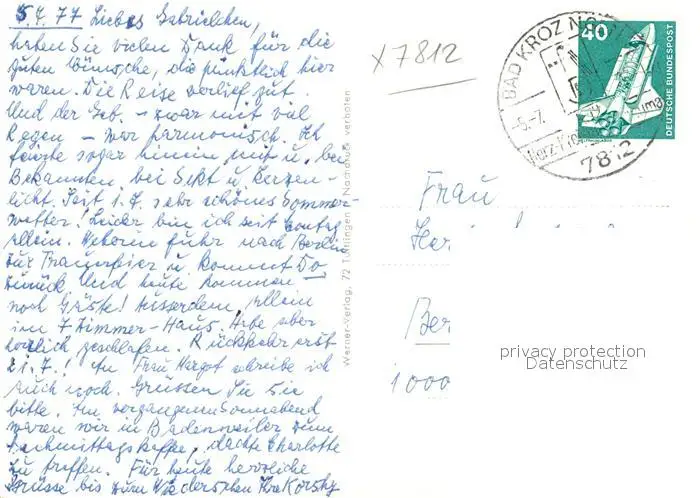 5.7.77 Liebes Gabrielchen,
haben Sie vielen Dank für die
guten Wünsche, die pünktlich hier
waren. Die Reise verlief gut.
Und der Geb. – zwar mit viel
Regen – war harmonisch. Ich
feierte sogar hinein mit u. bei
Bekannten bei Sekt u. Kerzen-
licht. Seit 1.7. sehr schönes Sommer-
wetter! Leider bin ich seit
allein. fuhr nach Berlin
zur Trauerfeier u. kommt Do
zurück. Und heute kommen
noch Gäste! Ausserdem, allein
im 7 Zimmer-Haus. Habe aber
herrlich geschlafen. Rückkehr erst
21.7.! An Frau Hergot schreibe ich
auch noch. Grüssen Sie Sie
bitte. Am vergangenen Sonnabend
waren wir in Badenweiler zum
Nachmittagskaffee, dachte Charlotte
zu treffen. Für heute herzliche
Grüsse bis zum Wiedersehen Ihre
Werner-Verlag, 72 Tuttlingen Nachdruck verboten
x 7812
BAD KROZINGEN
-5.-7.
Herz-
7812
40
DEUTSCHE BUNDESPOST
Frau
Her
Ber
1000
privacy protection
Datenschutz